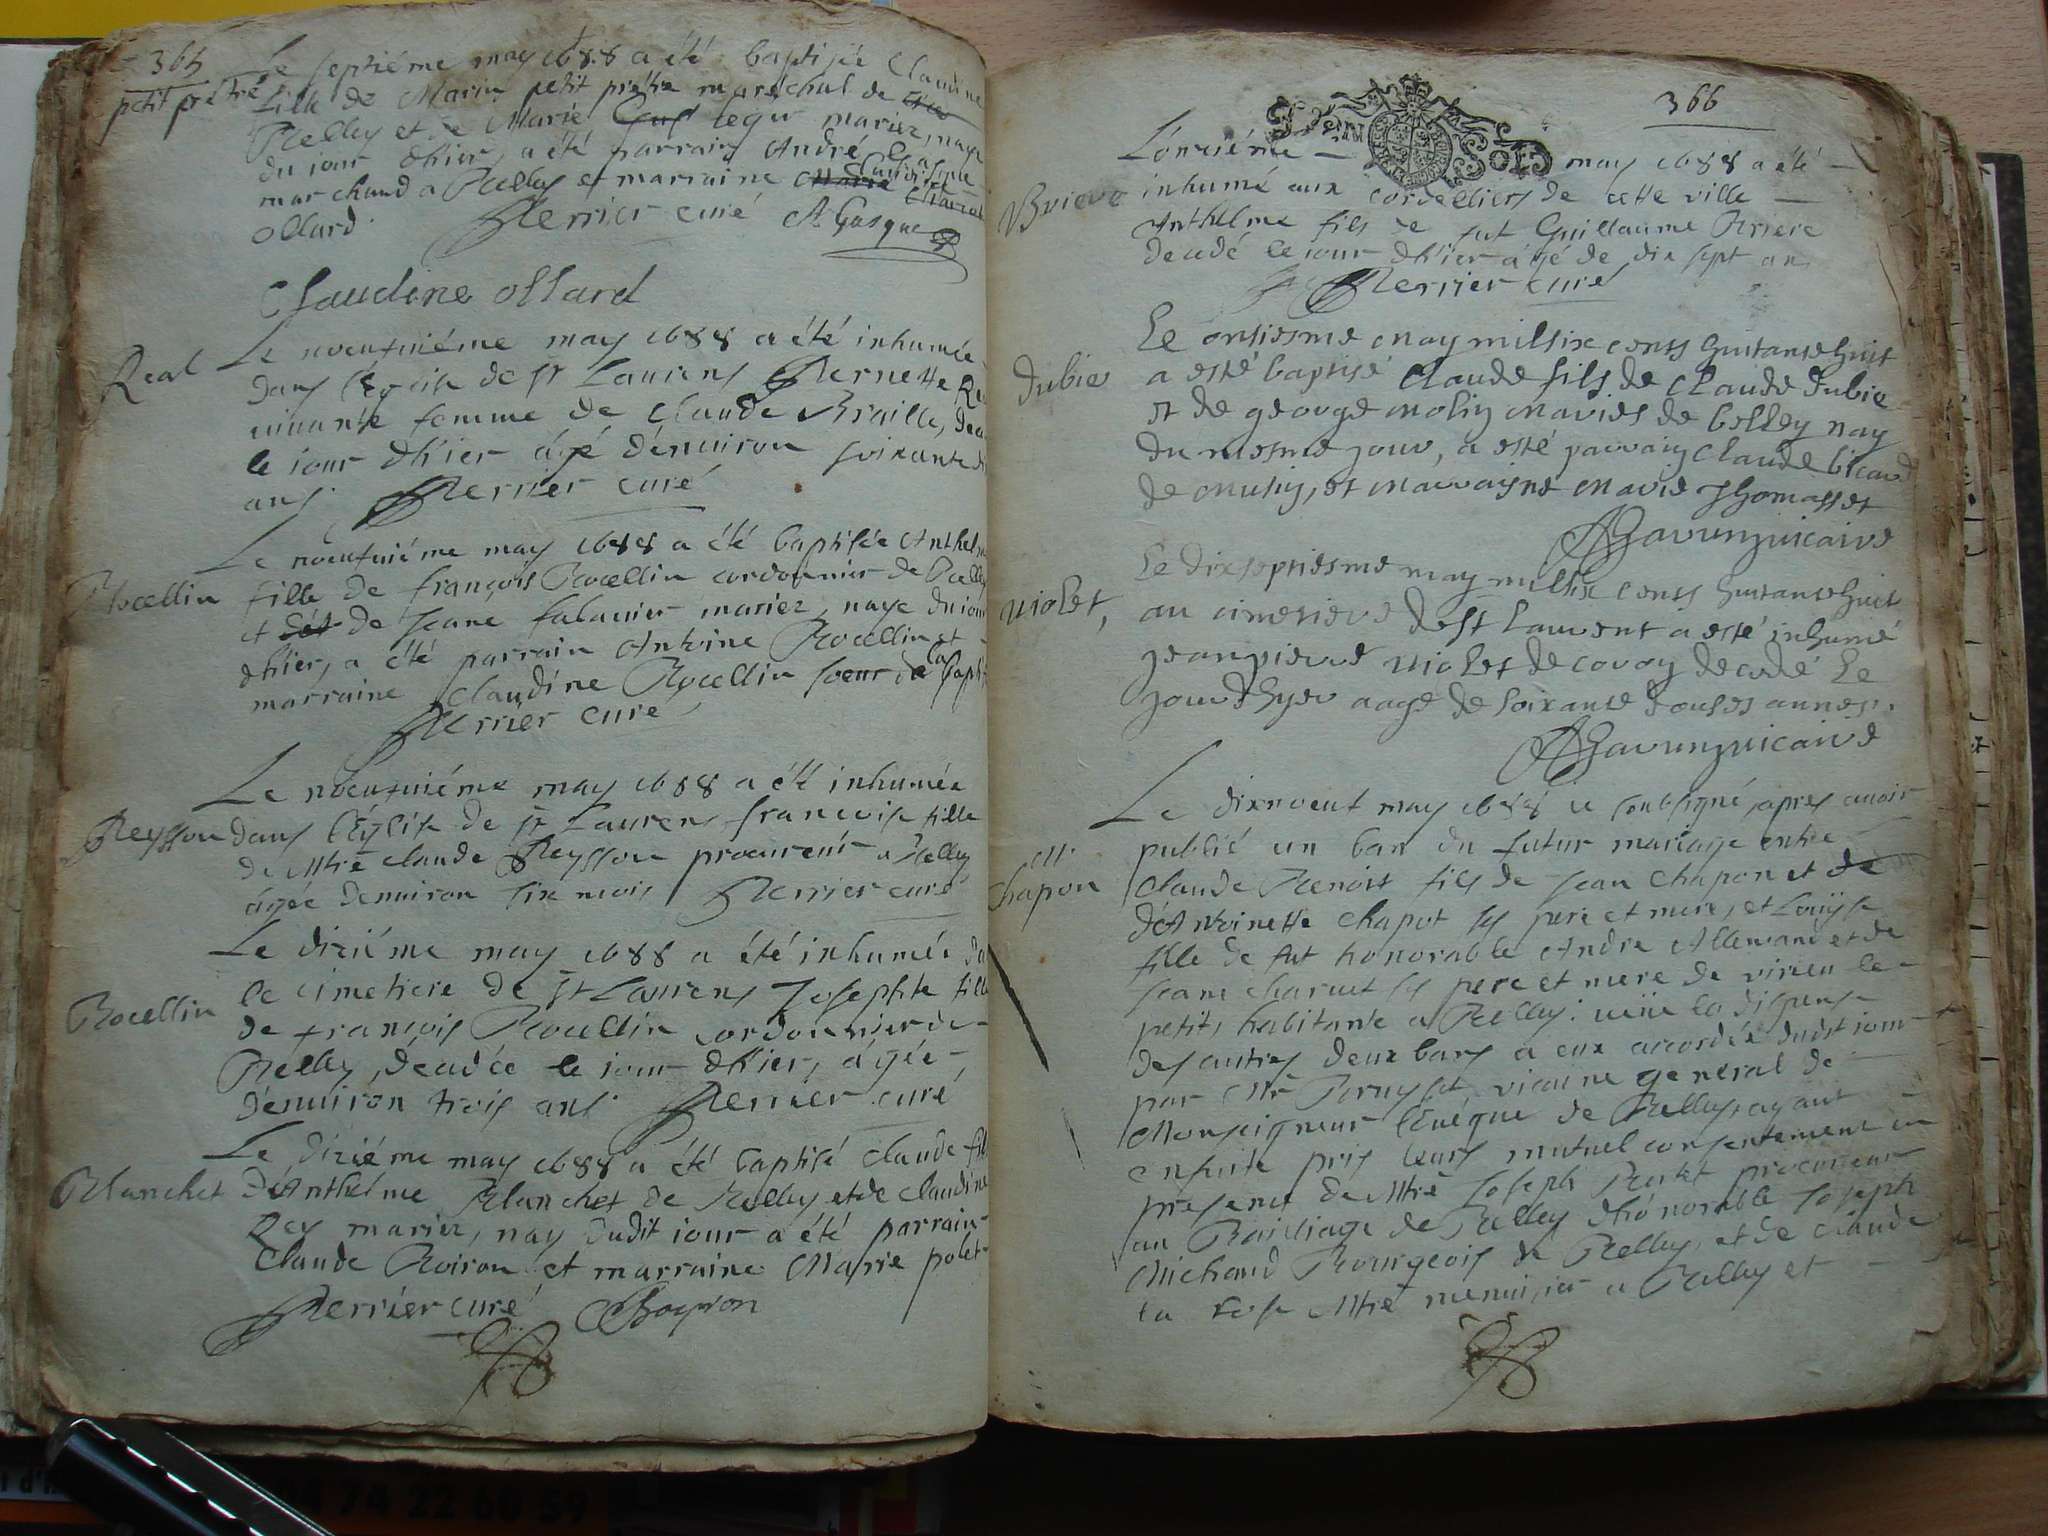 365
petit prétre
Le septiéme may 1688 a été baptisée Claudine
fille de Marin petit prétre maréchal de
Belley et de Marie legr mariez, naye
du jour dhier, a été parrain André Gasque
marchand a Belley et marraine Claudine
ollard. Perrier curé A. Gasque
Claudine ollard
Real
Le noeufuiéme may 1688 a été inhumée
dans l'Eglise de st Laurens Pernette
uiuante femme de Claude Braille,
le iour dhier agé d'enuiron soixante
ans. Perrier curé
Rocellin
Le noeufuiéme may 1688 a été baptisée
fille de françois Rocellin cordonnier de
et de Jeane mariez, naye du iour
dhier, a été parrain Antoine Rocellin et
marraine Claudine Rocellin soeur de la
Perrier curé
Reysson
Le noeufuiéme may 1688 a été inhumée
dans l'Eglise de st Laurens françoise fille
de Mtre Claude Reysson procureur a Belley
agée denuiron six mois Perrier curé
Rocellin
Le diziéme may 1688 a été inhumée
le cimetiere de st Laurens Josephte fille
de françois Rocellin cordonnier de
Belley, décédée le iour dhier, agée
d'enuiron trois ans. Perrier curé
Blanchet
Le diziéme may 1688 a été baptisé Claude
d'Anthelme Blanchet de Belley et de Claudine
Rey mariez, nay dudit iour a été parrain
Claude Boiron et marraine Marie polet
Perrier curé Boyron
366
Sols
Briere
L'onziéme may 1688 a été
inhumé aux cordeliers de cette ville
Anthelme fils de fut Guillaume Briere
decedé le iour dhier agé de dix sept an
Perrier curé
Dubie
Le onsiesme may mil six cents huitante huit
a esté baptisé Claude fils de Claude Dubie
et de george moliy maries de belley nay
du mesme jour, a esté parrain Claude
de et marraine marie Thomasset
uicaire
uiolet,
Le dixseptiesme may mil six cents huitante huit
au cimetiere de st laurent a esté inhumé
jean pierre uiolet de coron decedé le
jour d'hyer aagé de soixante douses annes.
uicaire
m.
Chapon
Le dixnoeuf may 1688 ie soubsigné, apres auoir
publié un ban du futur mariage entre
Claude Benoist fils de Jean Chapon et de
d'Antoinette Chapot ses pere et mere, et Loüyse
fille de fut honorable Andre Allemand et de
Jeane charuet ses pere et mere de virieu le
petit, habitante a Belley: ueüe la dispense
des autres deux bans a eux accordée dudit iour
par Mr vicaire general de
Monseigneur l'Euéque de Belley, ayant
ensuite pris leurs mutuel consentement en
presence de Mtre Joseph procureur
au Bailliage de Belley d'honorable Joseph
Michaud Bourgeois de Belley, et de Claude
la rose Mtre menuisier a Belley et
74 22 60 59